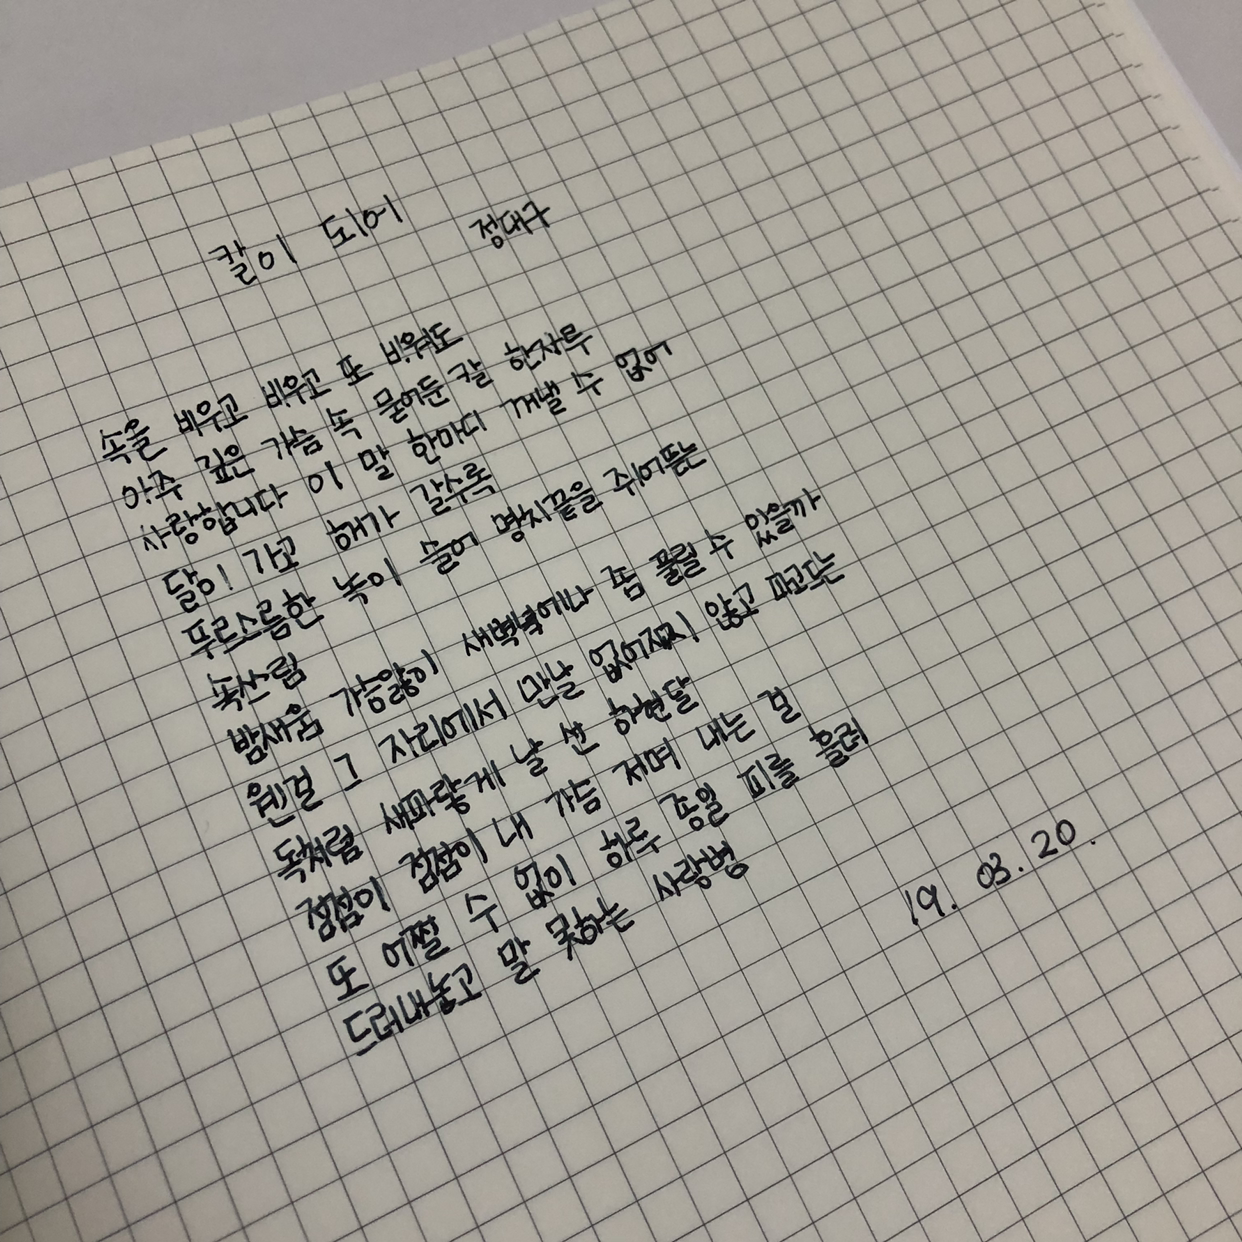 칼이 되어 정대구
속을 비우고 비우고 또 비워도
아주 깊은 가슴 속 묻어둔 칼 한자루
사랑합니다 이 말 한마디 꺼낼 수 없어
달이 가고 해가 갈수록
푸르스름한 녹이 슬어 명치끝을 쥐어뜯는
속쓰림
밤새움 가슴앓이 새벽녘에나 좀 풀릴 수 있을까
웬걸 그 자리에서 만날 없어지지 않고 파고드는
독처럼 새파랗게 날 선 하현달
점점이 점점이 내 가슴 저며 내는 걸
또 어쩔 수 없이 하루 종일 피를 흘려
드러내놓고 말 못하는 사랑병
19. 03. 20.